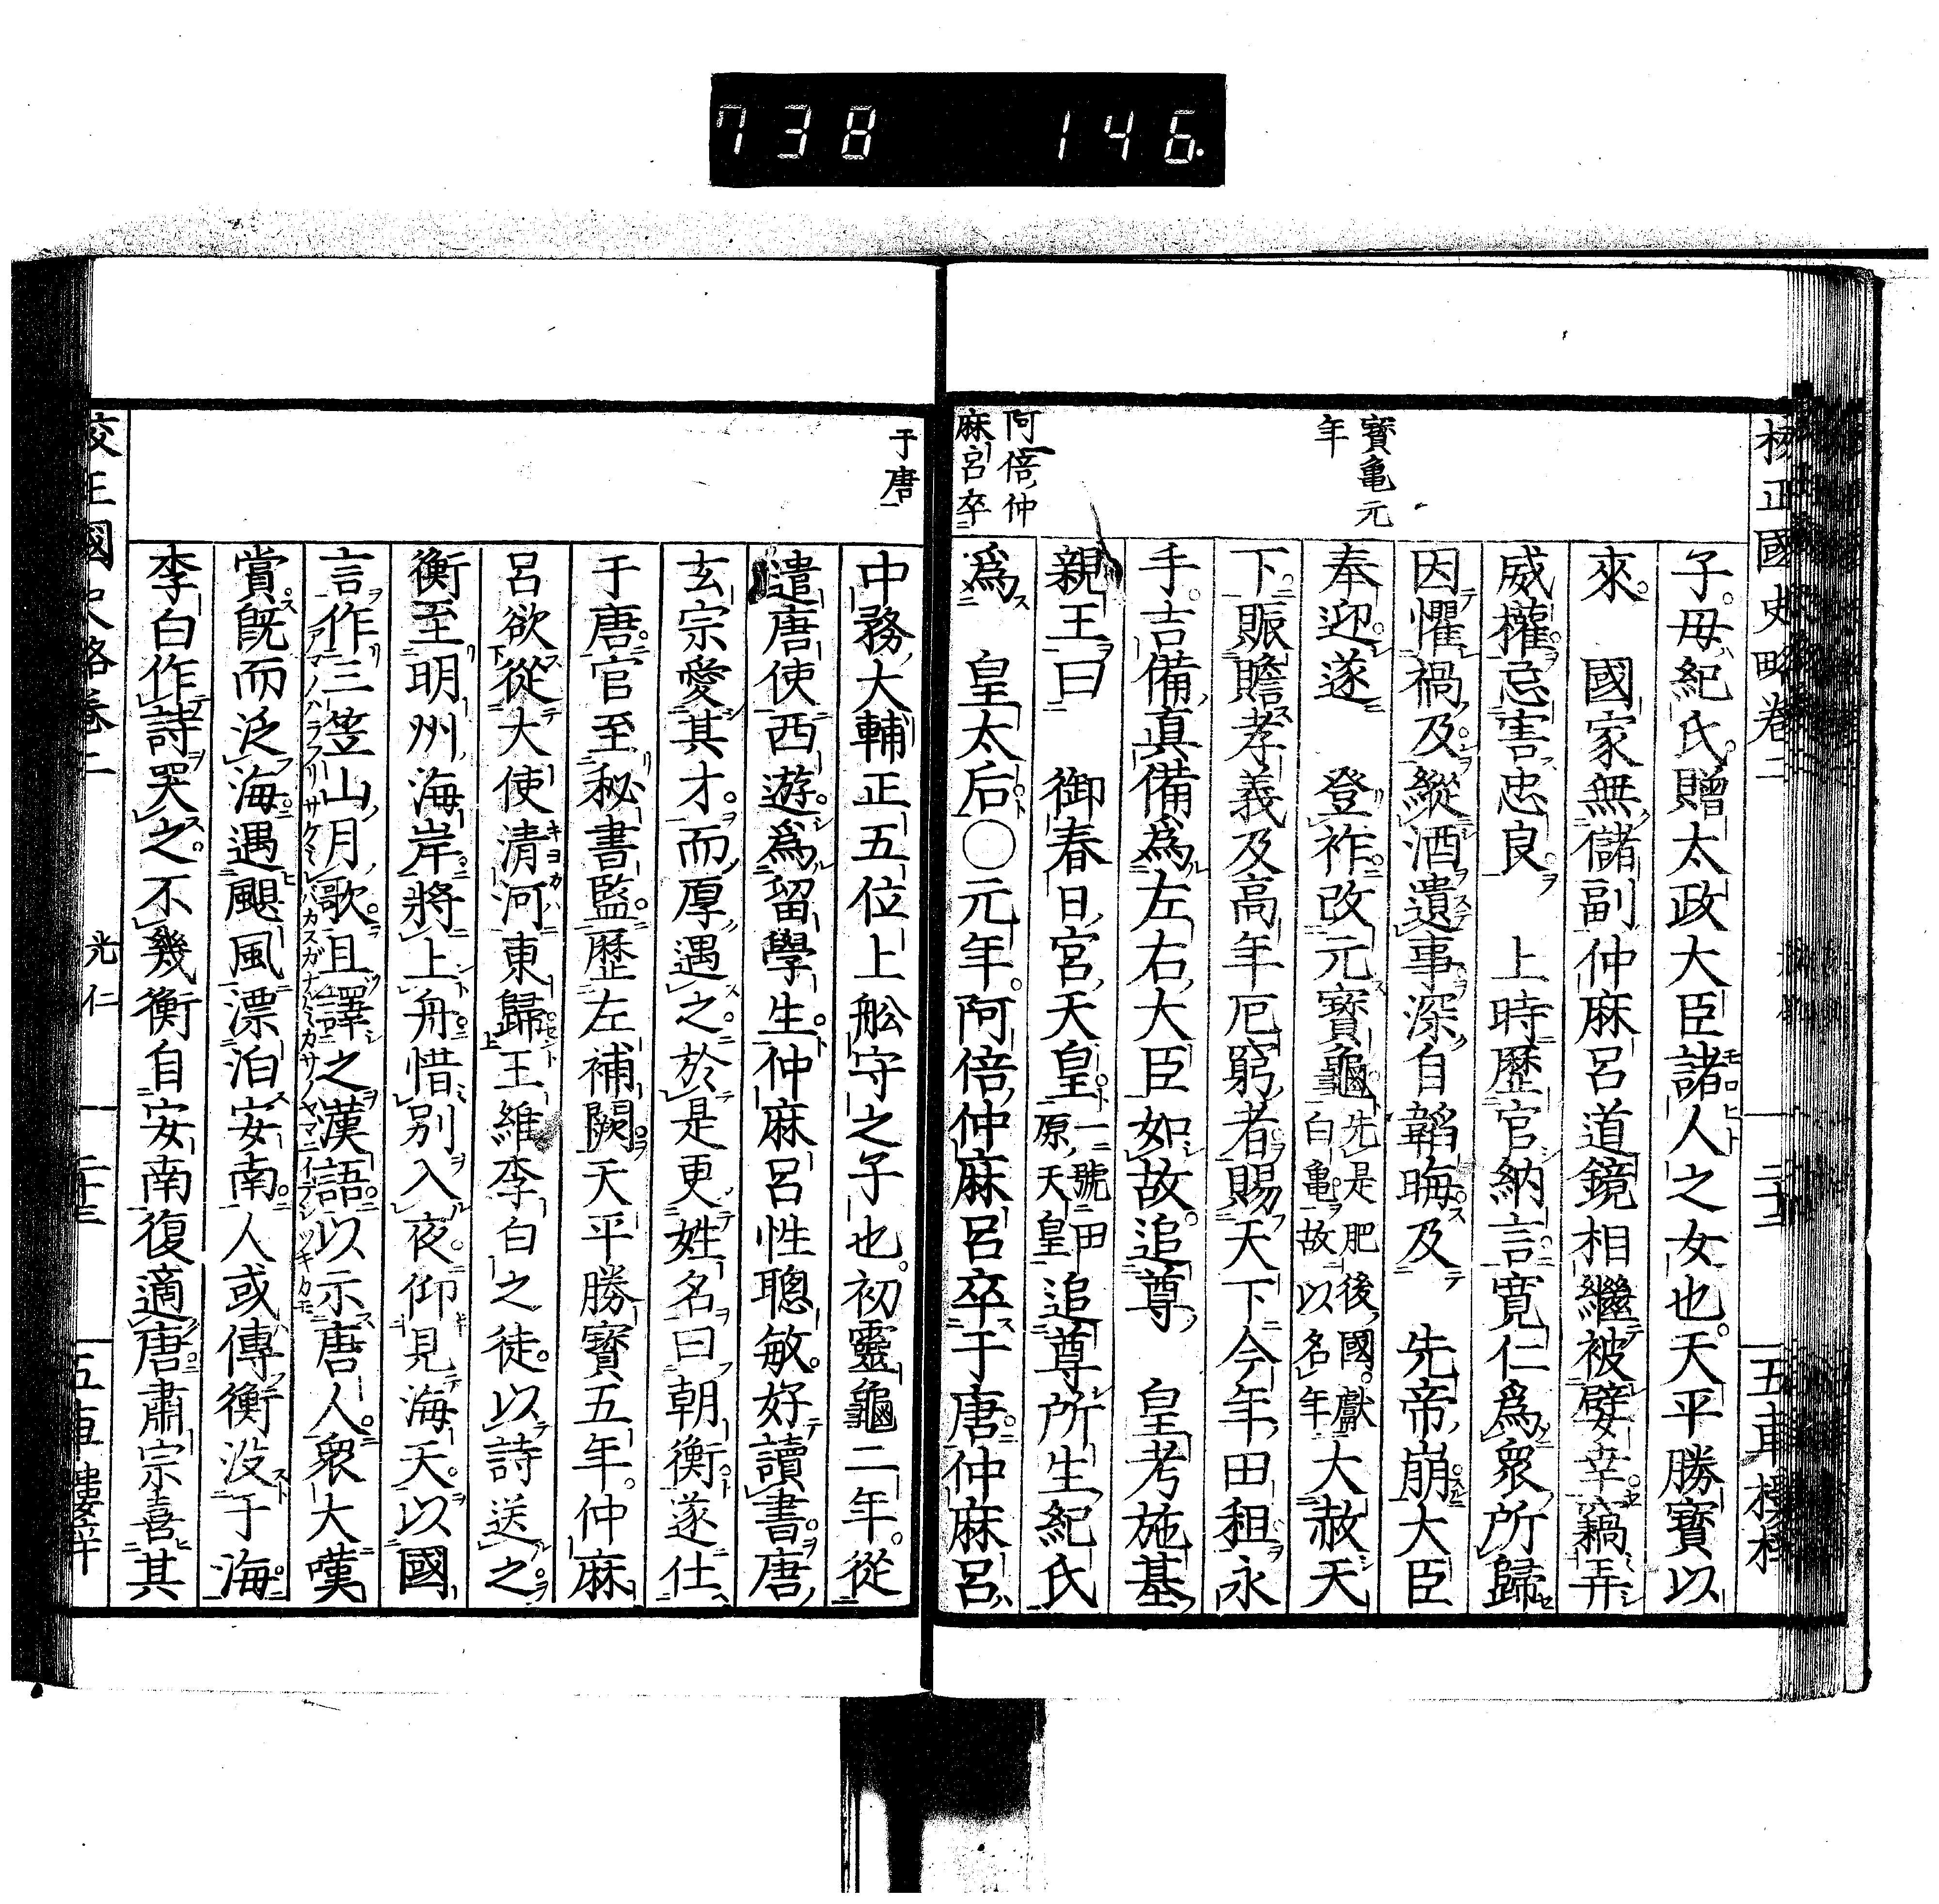 738 146.
校正國史略卷二
二十三
五車樓梓
寶亀元
年
阿倍仲
麻呂卒
子母紀氏贈太政大臣諸人之女也天平勝寶以
來 國家無儲副仲麻呂道鏡相繼被嬖幸竊弄
威權忌害忠良 上時歷官納言寬仁爲衆所歸
因懼禍及縱酒遺事深自韜晦及 先帝崩大臣
奉迎遂 登祚改元寶龜先是肥後國獻白亀故以名年大赦天
下賑贍孝義及高年厄窮者賜天下今年田租永
手吉備真備爲左右大臣如故追尊 皇考施基
親王曰 御春日宮天皇一號田原天皇追尊所生紀氏
爲 皇太后〇元年阿倍仲麻呂卒于唐仲麻呂
于唐
中務大輔正五位上舩守之子也初靈龜二年從
遣唐使西遊爲留學生仲麻呂性聰敏好讀書唐
玄宗愛其才而厚遇之於是更姓名曰朝衡遂仕
于唐官至秘書監歷左補闕天平勝寳五年仲麻
呂欲從大使清河東歸王維李白之徒以詩送之
衡至明州海岸將上舟惜別入夜仰見海天以國
言作三笠山月歌且譯之漢語以示唐人衆大嘆
アマノハラフリサケミレバカスガナルミカサノヤマニイデシツキカモ
賞既而泛海遇颶風漂泊安南人或傳衡没于海
李白作詩哭之不幾衡自安南復適唐肅宗喜其
校正國史略卷二
光仁
二十三
五車樓梓